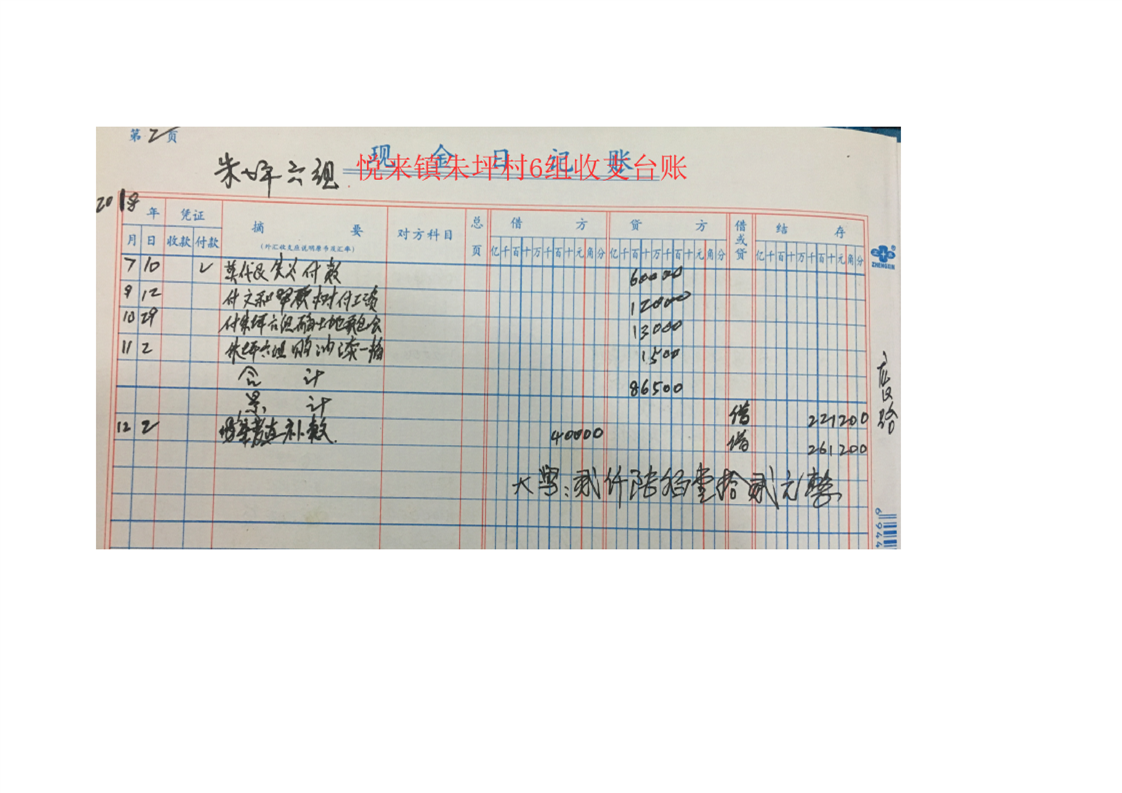 第2页
现金日记账
悦来镇朱坪村6组收支台账
朱坪六组
2018年 凭证 摘要 对方科目 总页 借方 贷方 借或贷 结存
月 日 收款 付款 (外汇收支应说明原币及汇率) 亿千百十万千百十元角分 亿千百十万千百十元角分 亿千百十万千百十元角分
7 10 ✓ 付款 60000
9 12 付 付工资 120000
10 29 付朱坪六组 土地承包会 13000
11 2 朱坪六组购油漆一桶 1500
合计 86500
累计 借 221200
12 2 补款 40000 借 261200
大写：贰仟陆佰壹拾贰元整
ZHENGXIN
6 944